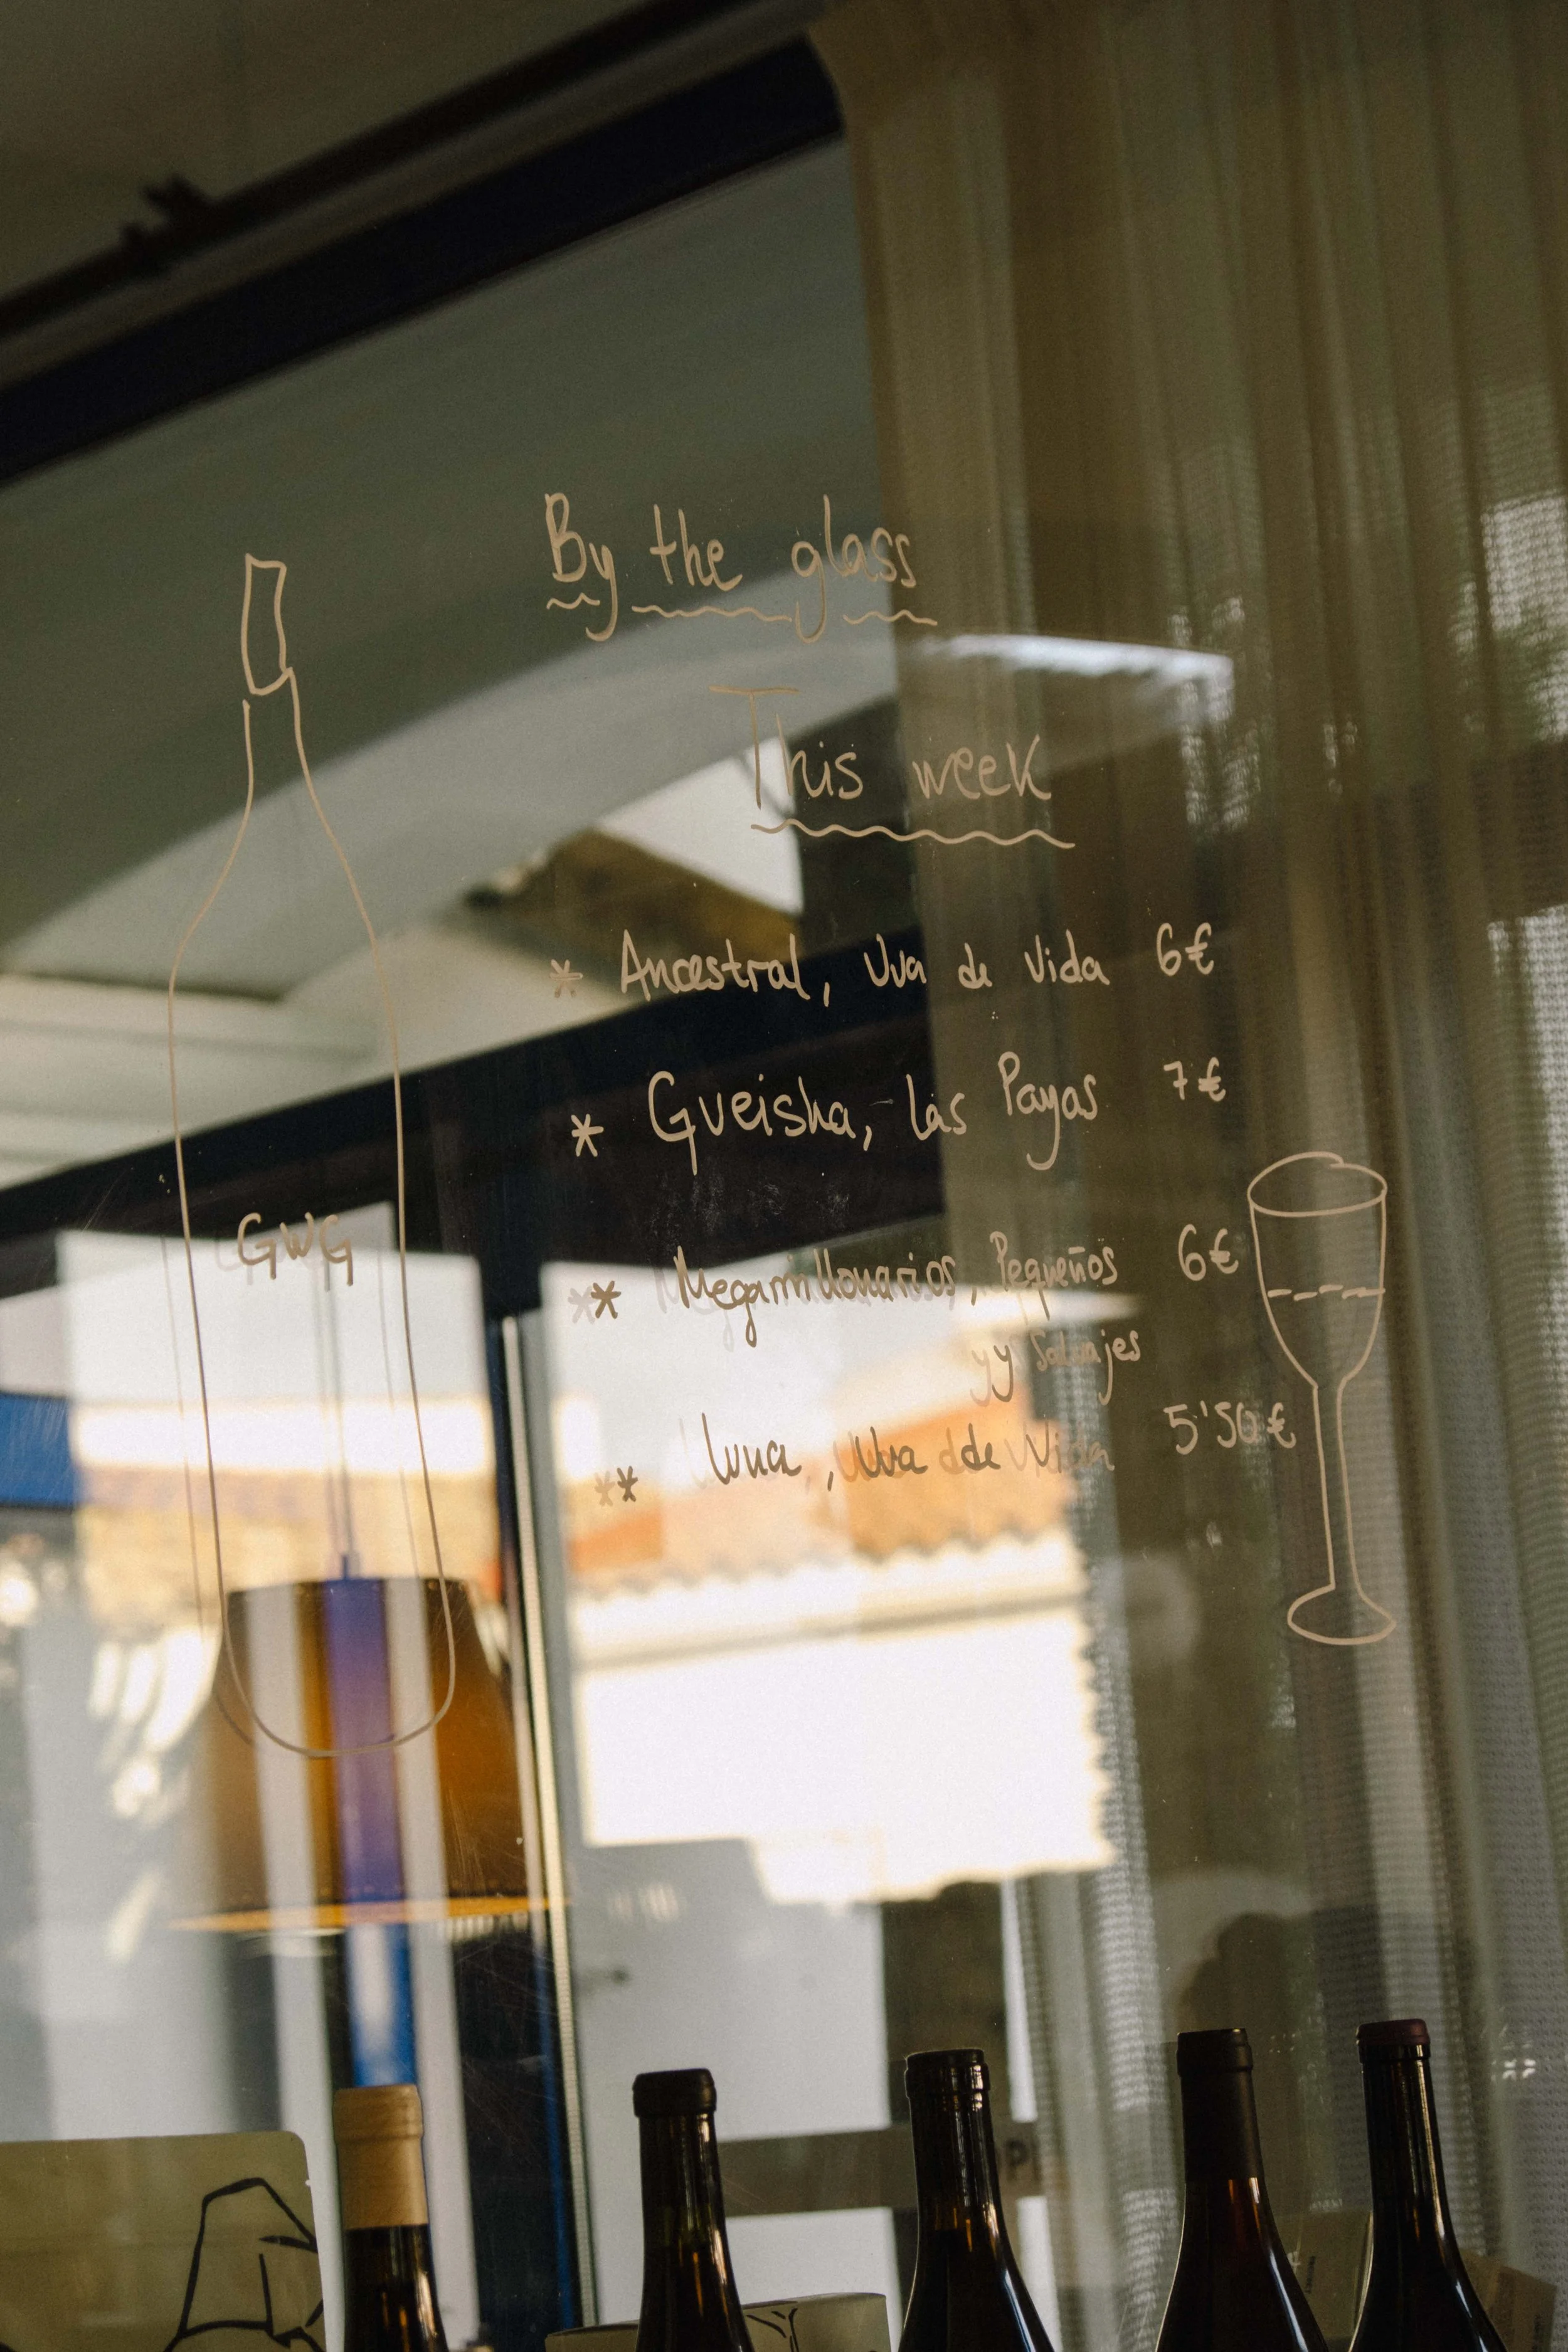 By the glass
This week
* Ancestral, Uva de Vida 6€
* Gueisha, Las Payas 7€
GWG
* Megamillonarios, Pequeños 6€
y Salvajes
* Luna, Uva de Vida 5'50€